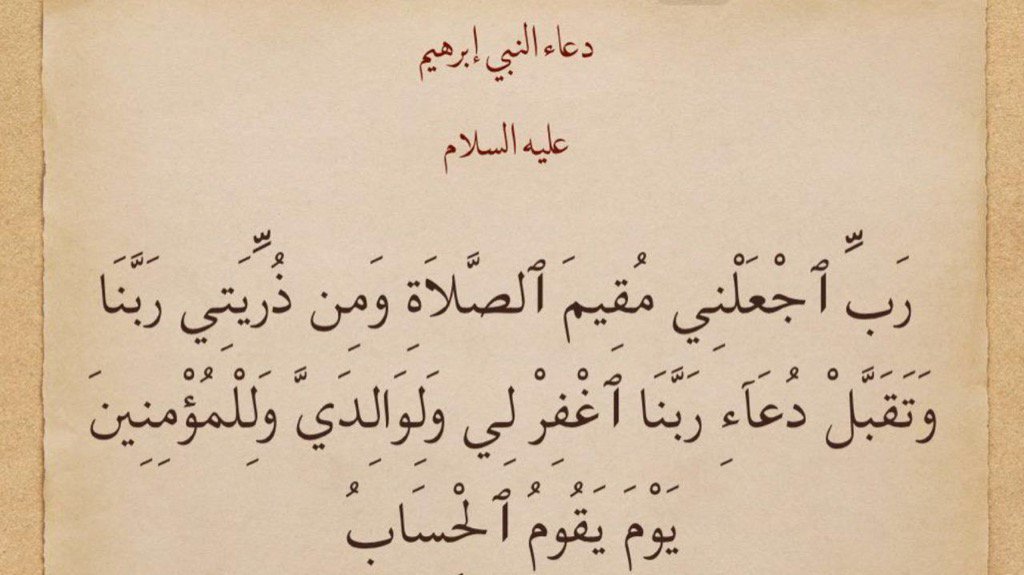 دعاء النبي إبرهيم
عليه السلام
رَبِّ ٱجْعَلْنِي مُقِيمَ ٱلصَّلَاةِ وَمِن ذُرِّيَتِي رَبَّنَا
وَتَقَبَّلْ دُعَآءِ رَبَّنَا ٱغْفِرْ لِي وَلِوَالِدَيَّ وَلِلْمُؤْمِنِينَ
يَوْمَ يَقُومُ ٱلْحْسَابُ